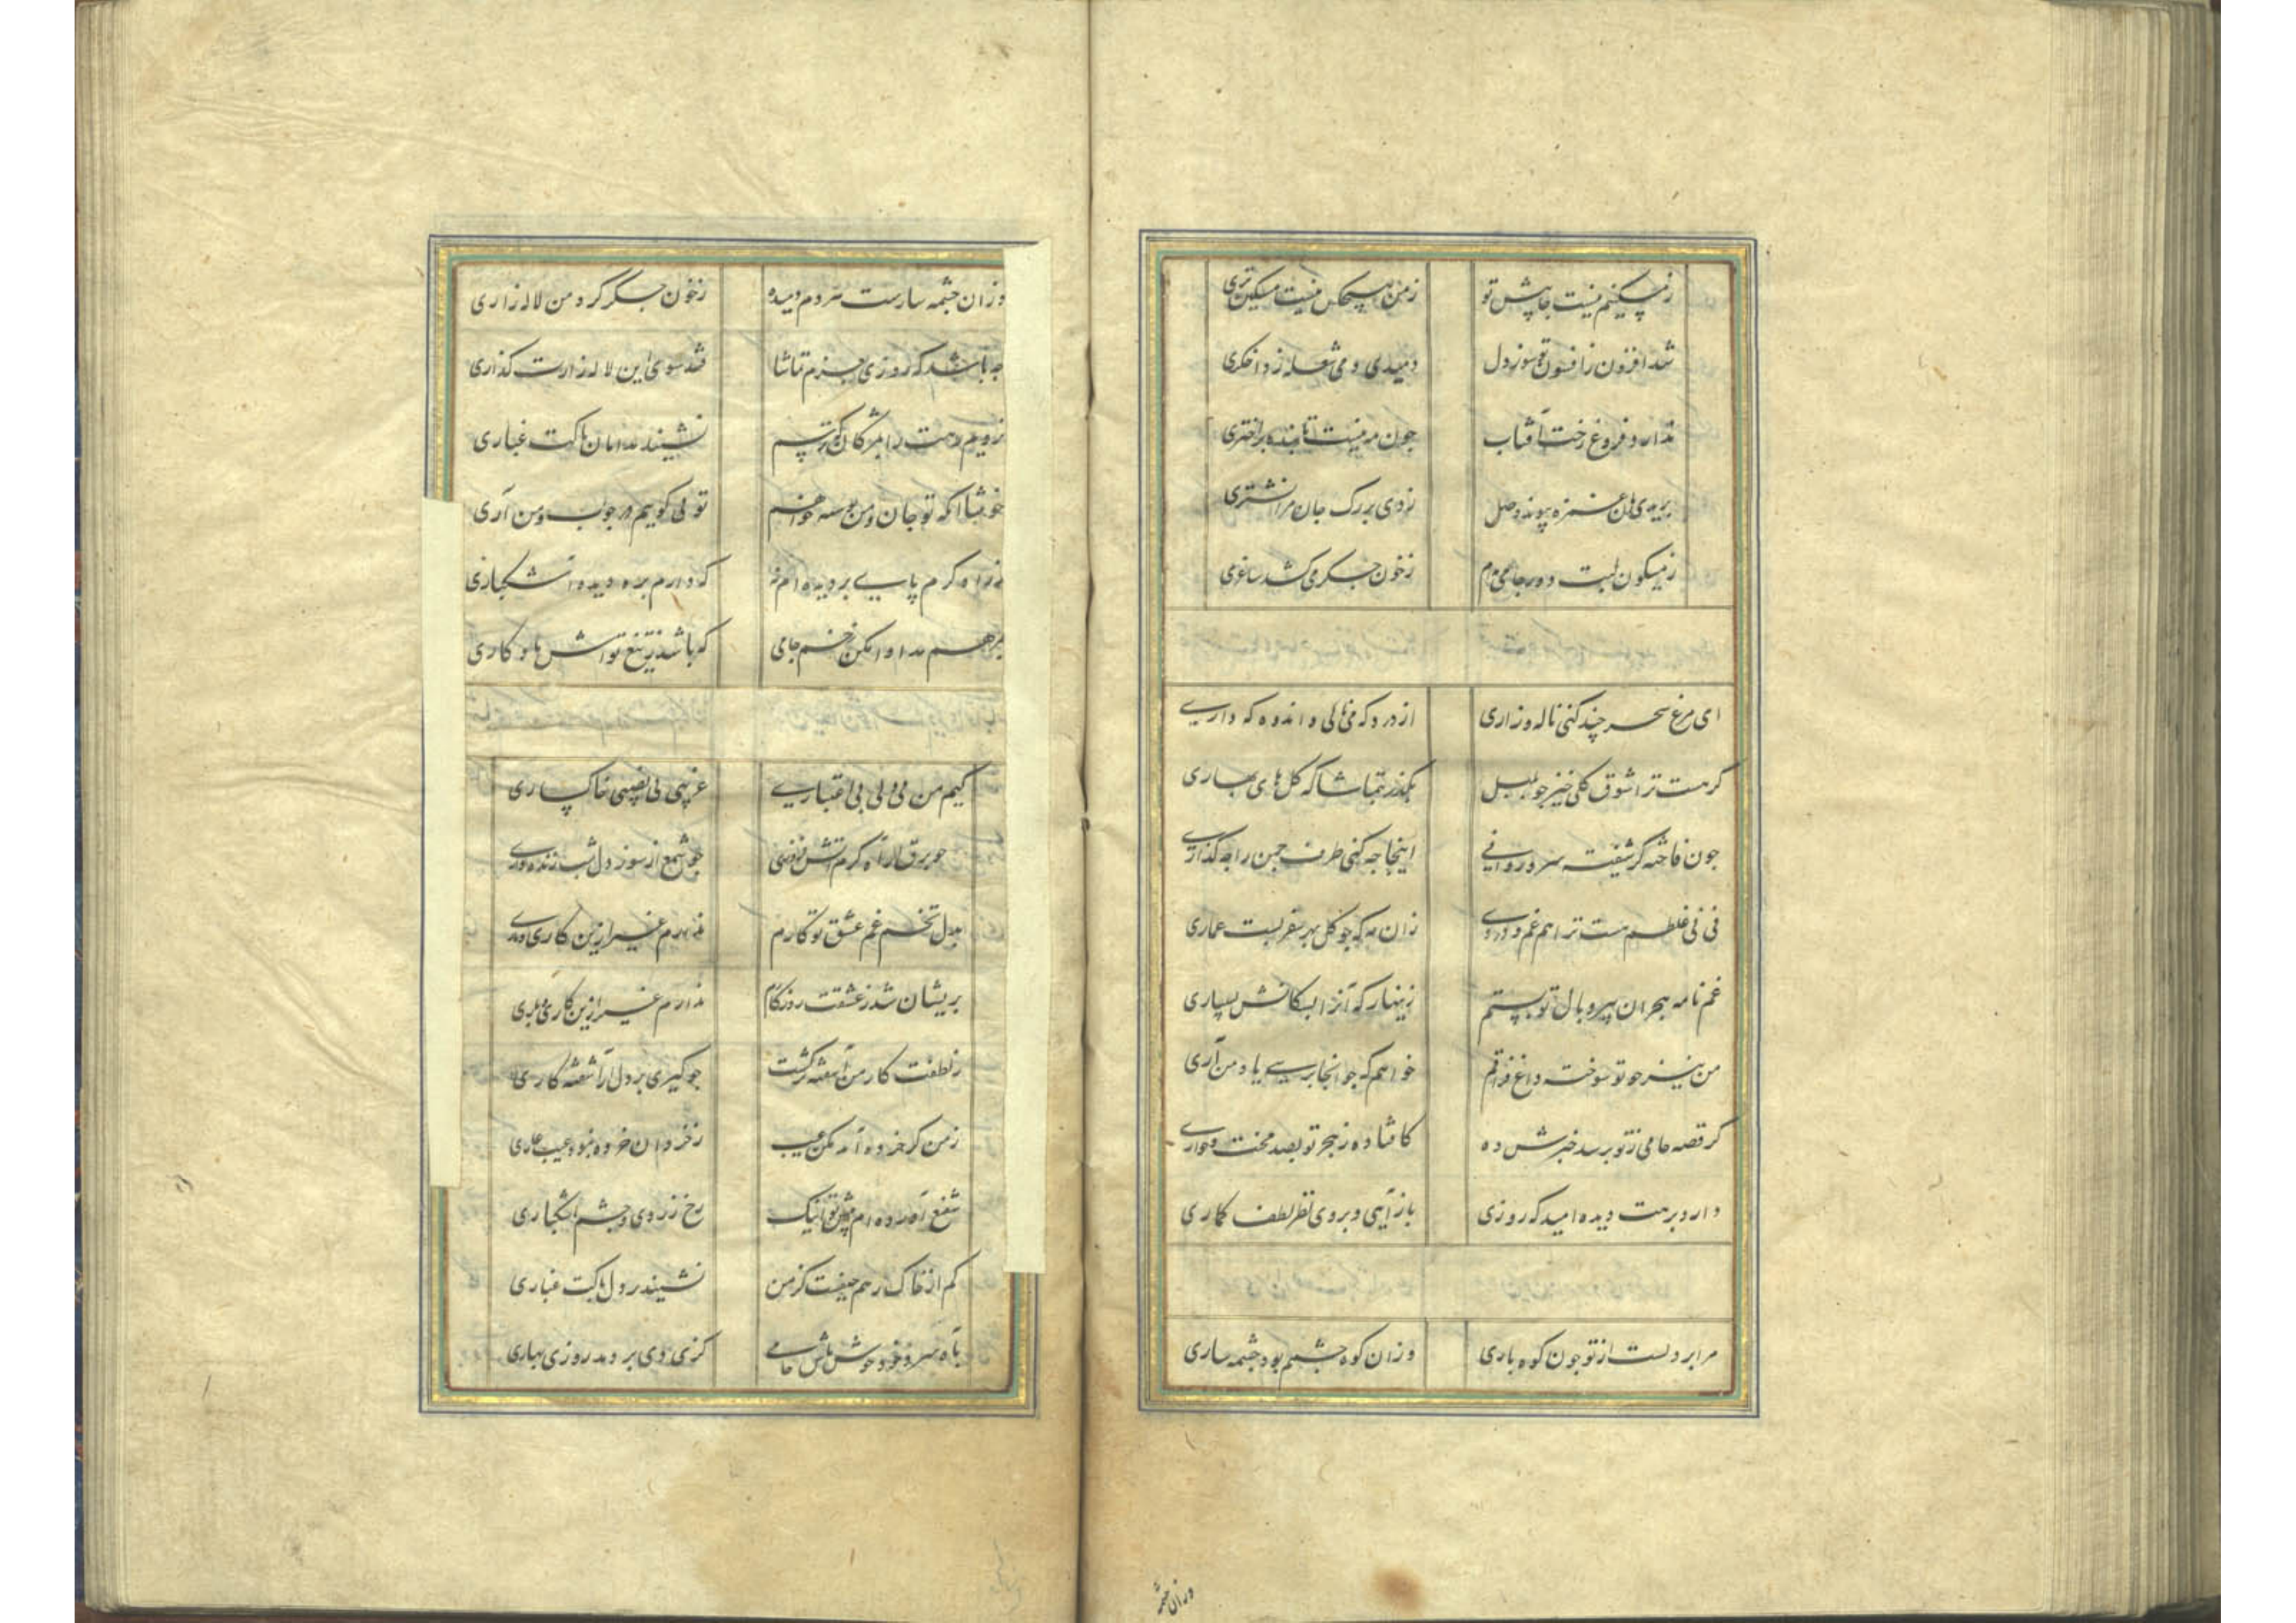 ز مسکینیم نیست جا پیش تو    ز من هیچکس نیست مسکین تری
شد افزون ز افسون تو سوز دل    دمیدی و می شعله زد اخکری
ندارد فروغ رخت آفتاب    چون مه نیست تابنده هر اختری
بریدی بآن غمزه پیوند وصل    زدی بر رک جان مرا نشتری
ز میکون لبت دور جامی مدام    ز خون جکر می کشد ساغری
ای مرغ سحر چند کنی ناله و زاری    از درد که می نالی و اندوه که داری
کر هست ترا شوق کلی خیز چو بلبل    بکذر بتماشا که کل های بهاری
چون فاخته کر شیفته سرو روانی    اینجا چه کنی طرف چمن را چه کذاری
نی نی غلطم هست ترا هم غم دوری    زان مه که چو کل بهر سفر بست عماری
غم نامه هجران بپر و بال تو بستم    زینهار که آنرا بسکانش بسپاری
من نیز چو تو سوخته داغ فراقم    خواهم که چو آنجا برسی یاد من آری
کر قصه جامی ز تو پرسد خبرش ده    کافتاده ز هجر تو بصد محنت و خواری
دارد برهت دیده امید که روزی    باز آیی و بر وی نظر لطف کماری
مرا بر دلست از تو چون کوه باری    وزان کوه چشمم بود چشمه ساری
وزان چشمه
وزان چشمه سارست هر دم دمیده    ز خون جکر کرد من لاله زاری
چه باشد که روزی بعزم تماشا    فتد سوی این لاله زارت کذاری
بروبم رهت را بمژکان که ترسم    نشیند بدامان پاکت غباری
خوشا آنکه تو جان و من بوسه خواهم    تو نی کوییم در جواب و من آری
ز راه کرم پایی بر دیده ام نه    که دارم بره دیده اشکباری
بمرهم مداوا مکن زخم جامی    که باشد ز تیغ تواش یادکاری
کیم من بی دلی بی اعتباری    غریبی بی نصیبی خاکساری
چو برق از آه کرم آتش فروزی    چو شمع از سوز دل شب زنده داری
بدل تخم غم عشق تو کارم    ندارم غیر ازین کاری و باری
پریشان شد ز عشقت روزکارم    ندارم غیر ازین کاری و باری
ز لطفت کار من آشفته تر کشت    چو کیری بر دل آشفته کاری
ز من کر خرده آمد مکن عیب    ز خردان خرده نبود عیب و عاری
شفیع آورده ام پیش تو اینک    رخ زردی و چشم اشکباری
کم از خاک رهم حیفست کز من    نشیند در دل پاکت غباری
بآه سرد خود خوش باش جامی    کزی دی بر دمد روزی بهاری